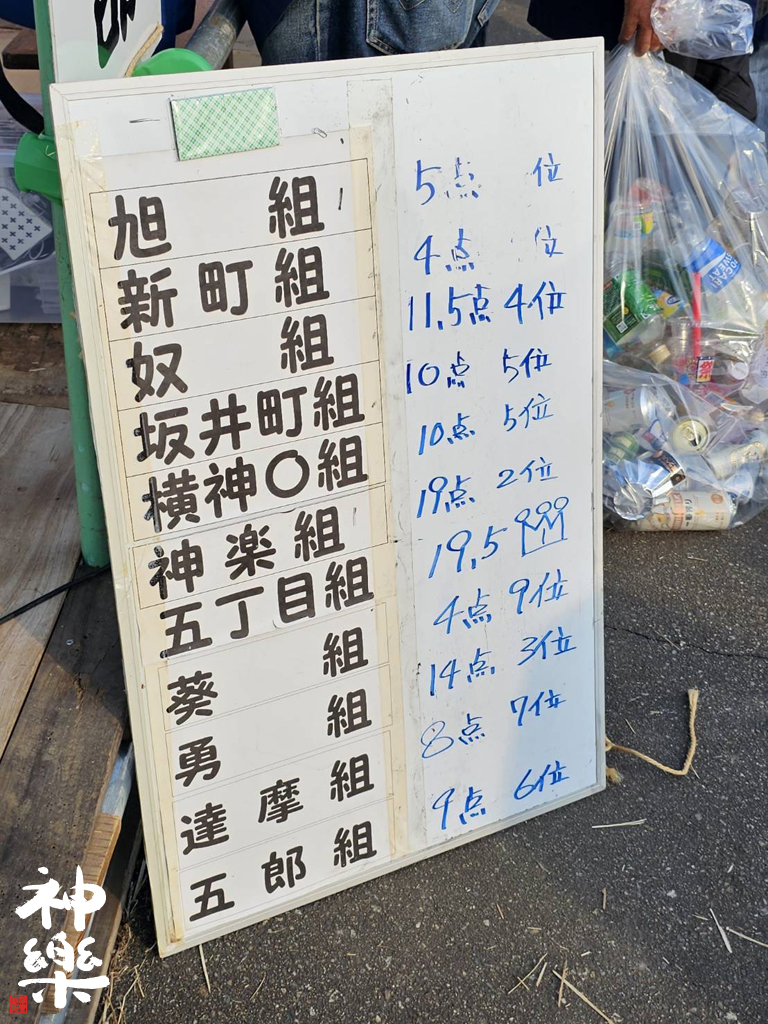 旭組 5点 位
新町組 4点 位
奴組 11.5点 4位
坂井町組 10点 5位
横神〇組 10点 5位
神楽組 19点 2位
五丁目組 19.5
葵組 4点 9位
勇組 14点 3位
達摩組 8点 7位
五郎組 9点 6位
神樂